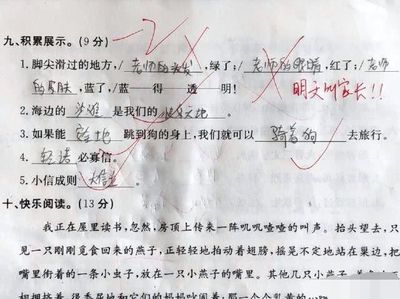 九、积累展示。(9分) -2
1.脚尖滑过的地方,/老师的头发,绿了;/老师的眼睛,红了;/老师
的皮肤,蓝了,/蓝——得——透——明! 明天叫家长!!
2.海边的 沙滩 是我们的 快乐天地 。
3.如果能 跳到狗的身上,我们就可以 骑着狗 去旅行。
4. 轻诺 必寡信。
5.小信成则 大信立 。
十、快乐阅读。(13分)
我正在屋里读书,忽然,房顶上传来一阵叽叽喳喳的叫声。抬头望去,只
见一只刚刚觅食回来的燕子,正轻轻地拍动着翅膀,摇晃不定地站在巢边,把
嘴里衔着的一条小虫子,放在一只小燕子的嘴里。其他几只小燕子